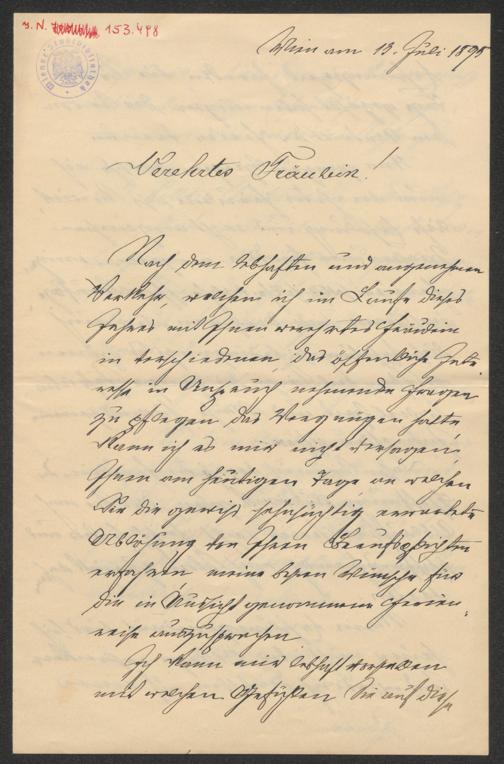 J. N. 153.498
Wiener Stadtbibliothek
Wien am 13. Juli 1895
Verehrtes Fräulein!
Nach dem lebhaften und angenehmen
Verkehr, welchen ich im Laufe dieses
Jahres mit Ihnen verehrtes Fräulein
in verschiedenen, das öffentliche Inte
resse in Anspruch nehmende Fragen
zu pflegen das Vergnügen hatte,
kann ich es mir nicht versagen,
Ihnen am heutigen Tage an welchen
Sie die gewiß sehnsüchtig erwartete
Ablösung von Ihren Berufspflichten
erfahren, meine besten Wünsche für
die in Aussicht genommene Ferien-
reise auszusprechen.
Ich kann mir lebhaft vorstellen
mit welchen Gefühlen Sie auf diese